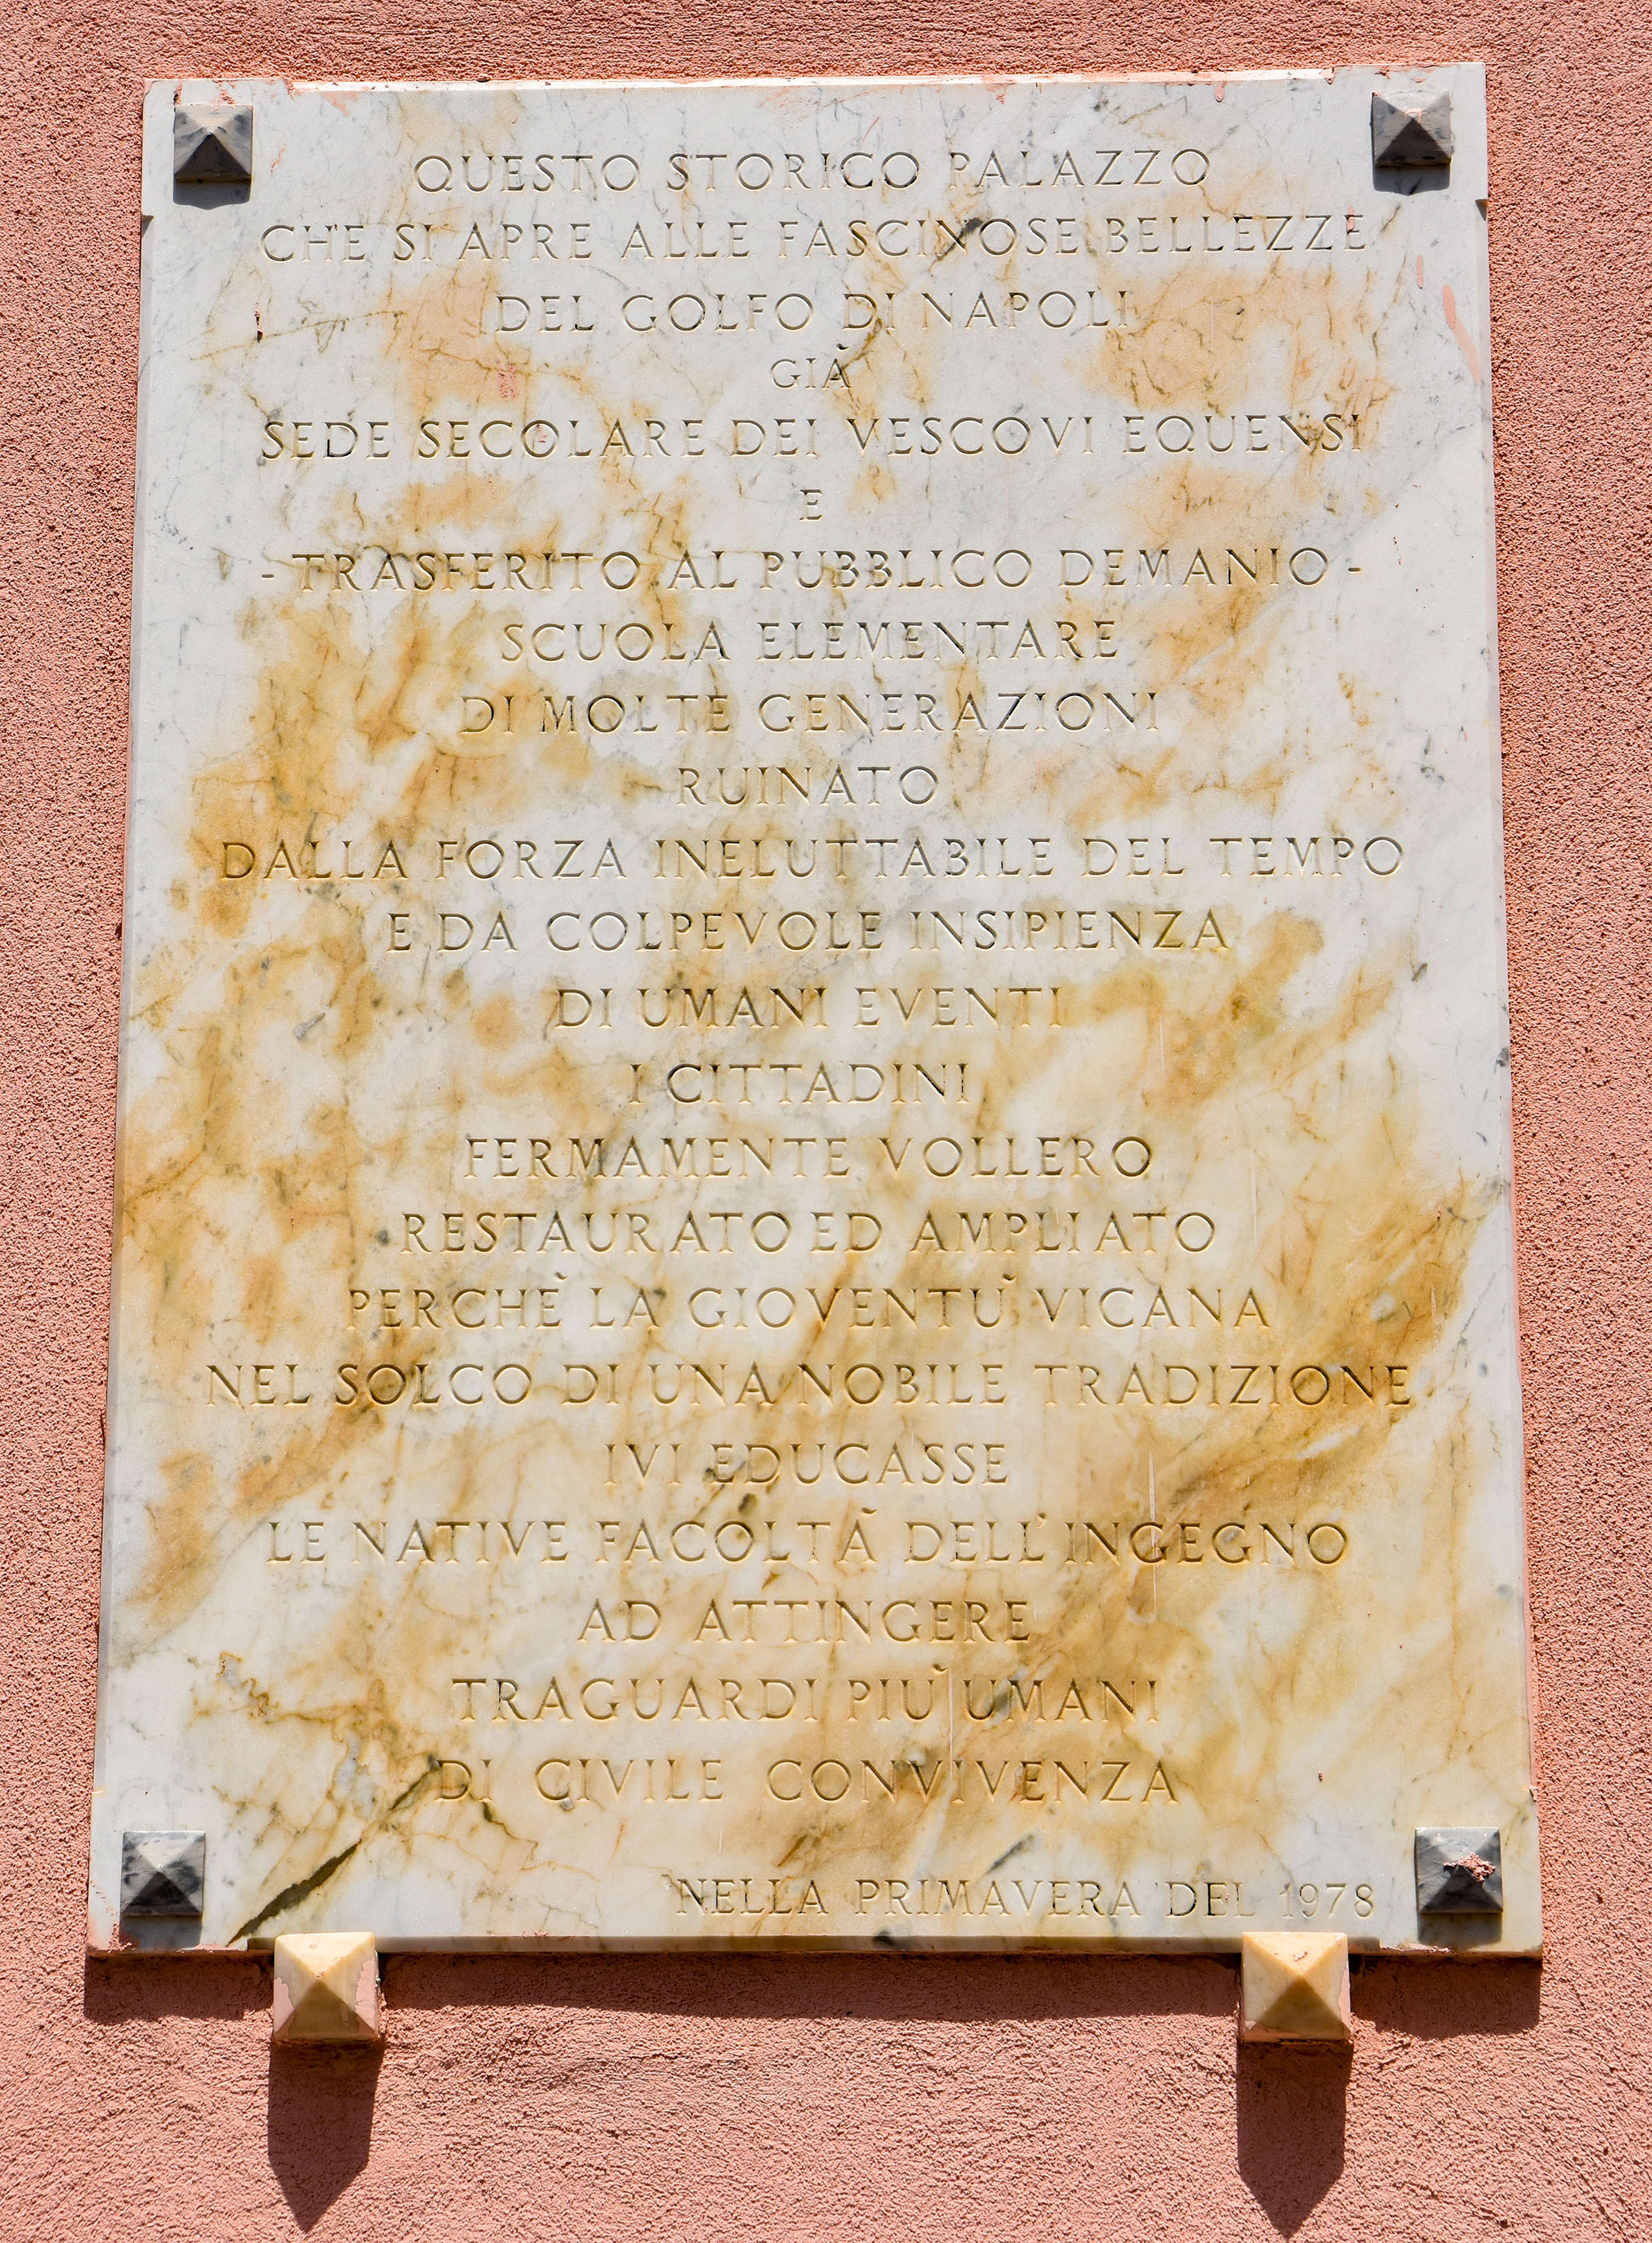 QUESTO STORICO PALAZZO
CHE SI APRE ALLE FASCINOSE BELLEZZE
DEL GOLFO DI NAPOLI
GIÀ
SEDE SECOLARE DEI VESCOVI EQUENSI
E
- TRASFERITO AL PUBBLICO DEMANIO -
SCUOLA ELEMENTARE
DI MOLTE GENERAZIONI
RUINATO
DALLA FORZA INELUTTABILE DEL TEMPO
E DA COLPEVOLE INSIPIENZA
DI UMANI EVENTI
I CITTADINI
FERMAMENTE VOLLERO
RESTAURATO ED AMPLIATO
PERCHÈ LA GIOVENTÙ VICANA
NEL SOLCO DI UNA NOBILE TRADIZIONE
IVI EDUCASSE
LE NATIVE FACOLTÀ DELL'INGEGNO
AD ATTINGERE
TRAGUARDI PIÙ UMANI
DI CIVILE CONVIVENZA
NELLA PRIMAVERA DEL 1978